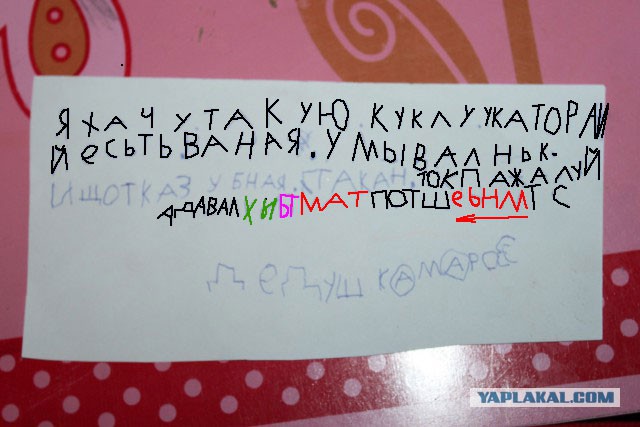 Я ХАЧУ ТАКУЮ КУКЛУ УКАТОРЛИ
Й еСЬТЬ ВАНАЯ. УМЫВАЛНЬК.
И ЩОТКАЗУБНАЯ. СТАКАН. ТОКПАЖАЛУЙ
МАТПОТШеЬНМТС
ДеДУШКАМАРОС
YAPLAKAL.COM